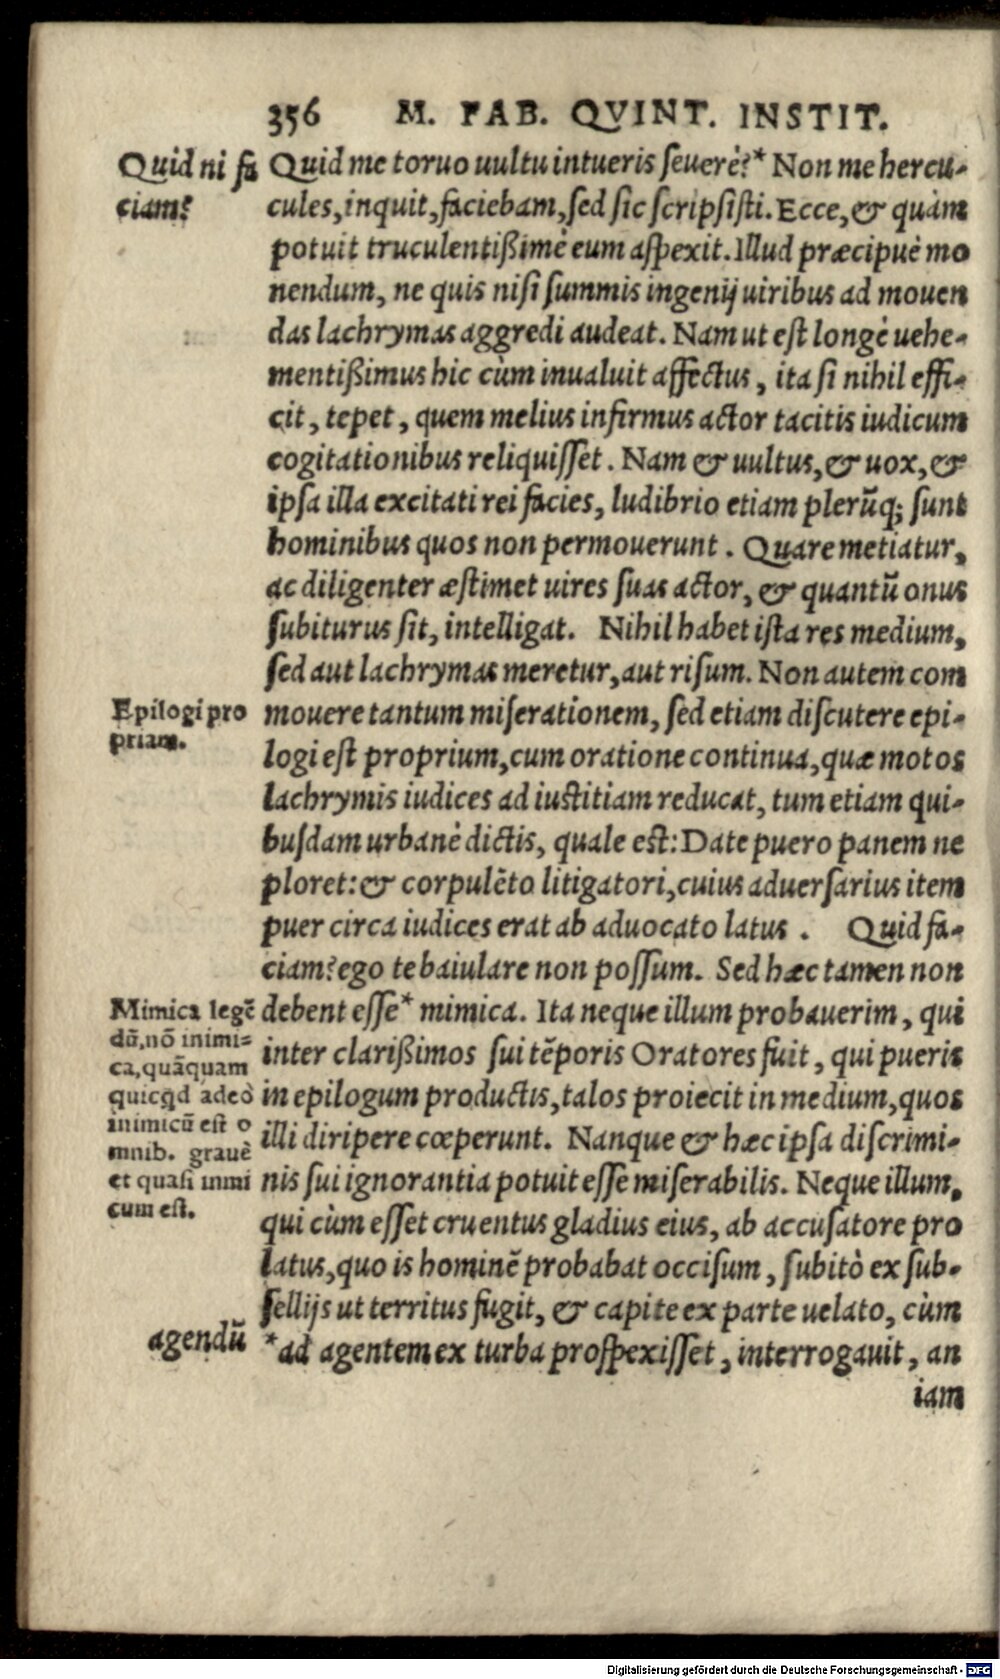 356 M. FAB. QVINT. INSTIT.
Quid ni fa
ciam?
Quid me toruo uultu intueris seuerè?* Non me hercu-
cules, inquit, faciebam, sed sic scripsisti. Ecce, & quàm
potuit truculentißimè eum aspexit. Illud præcipuè mo
nendum, ne quis nisi summis ingenij uiribus ad mouen
das lachrymas aggredi audeat. Nam ut est longè uehe-
mentißimus hic cùm inualuit affectus, ita si nihil effi-
cit, tepet, quem melius infirmus actor tacitis iudicum
cogitationibus reliquisset. Nam & uultus, & uox, &
ipsa illa excitati rei facies, ludibrio etiam plerũq; sunt
hominibus quos non permouerunt. Quare metiatur,
ac diligenter æstimet uires suas actor, & quantũ onus
subiturus sit, intelligat. Nihil habet ista res medium,
sed aut lachrymas meretur, aut risum. Non autem com
Epilogi pro
priam.
mouere tantum miserationem, sed etiam discutere epi-
logi est proprium, cum oratione continua, quæ motos
lachrymis iudices ad iustitiam reducat, tum etiam qui-
busdam urbanè dictis, quale est: Date puero panem ne
ploret: & corpulẽto litigatori, cuius aduersarius item
puer circa iudices erat ab aduocato latus. Quid fa-
ciam? ego te baiulare non possum. Sed hæc tamen non
Mimica legẽ
dũ, nõ inimi=
ca, quãquam
quicqd adeò
inimicũ est o
mnib. grauè
et quasi inimi
cum est.
debent esse* mimica. Ita neque illum probauerim, qui
inter clarißimos sui tẽporis Oratores fuit, qui pueris
in epilogum productis, talos proiecit in medium, quos
illi diripere cœperunt. Nanque & hæc ipsa discrimi-
nis sui ignorantia potuit esse miserabilis. Neque illum,
qui cùm esset cruentus gladius eius, ab accusatore pro
latus, quo is hominẽ probabat occisum, subitò ex sub-
sellijs ut territus fugit, & capite ex parte uelato, cùm
agendũ
*ad agentem ex turba prospexisset, interrogauit, an
iam
Digitalisierung gefördert durch die Deutsche Forschungsgemeinschaft - DFG